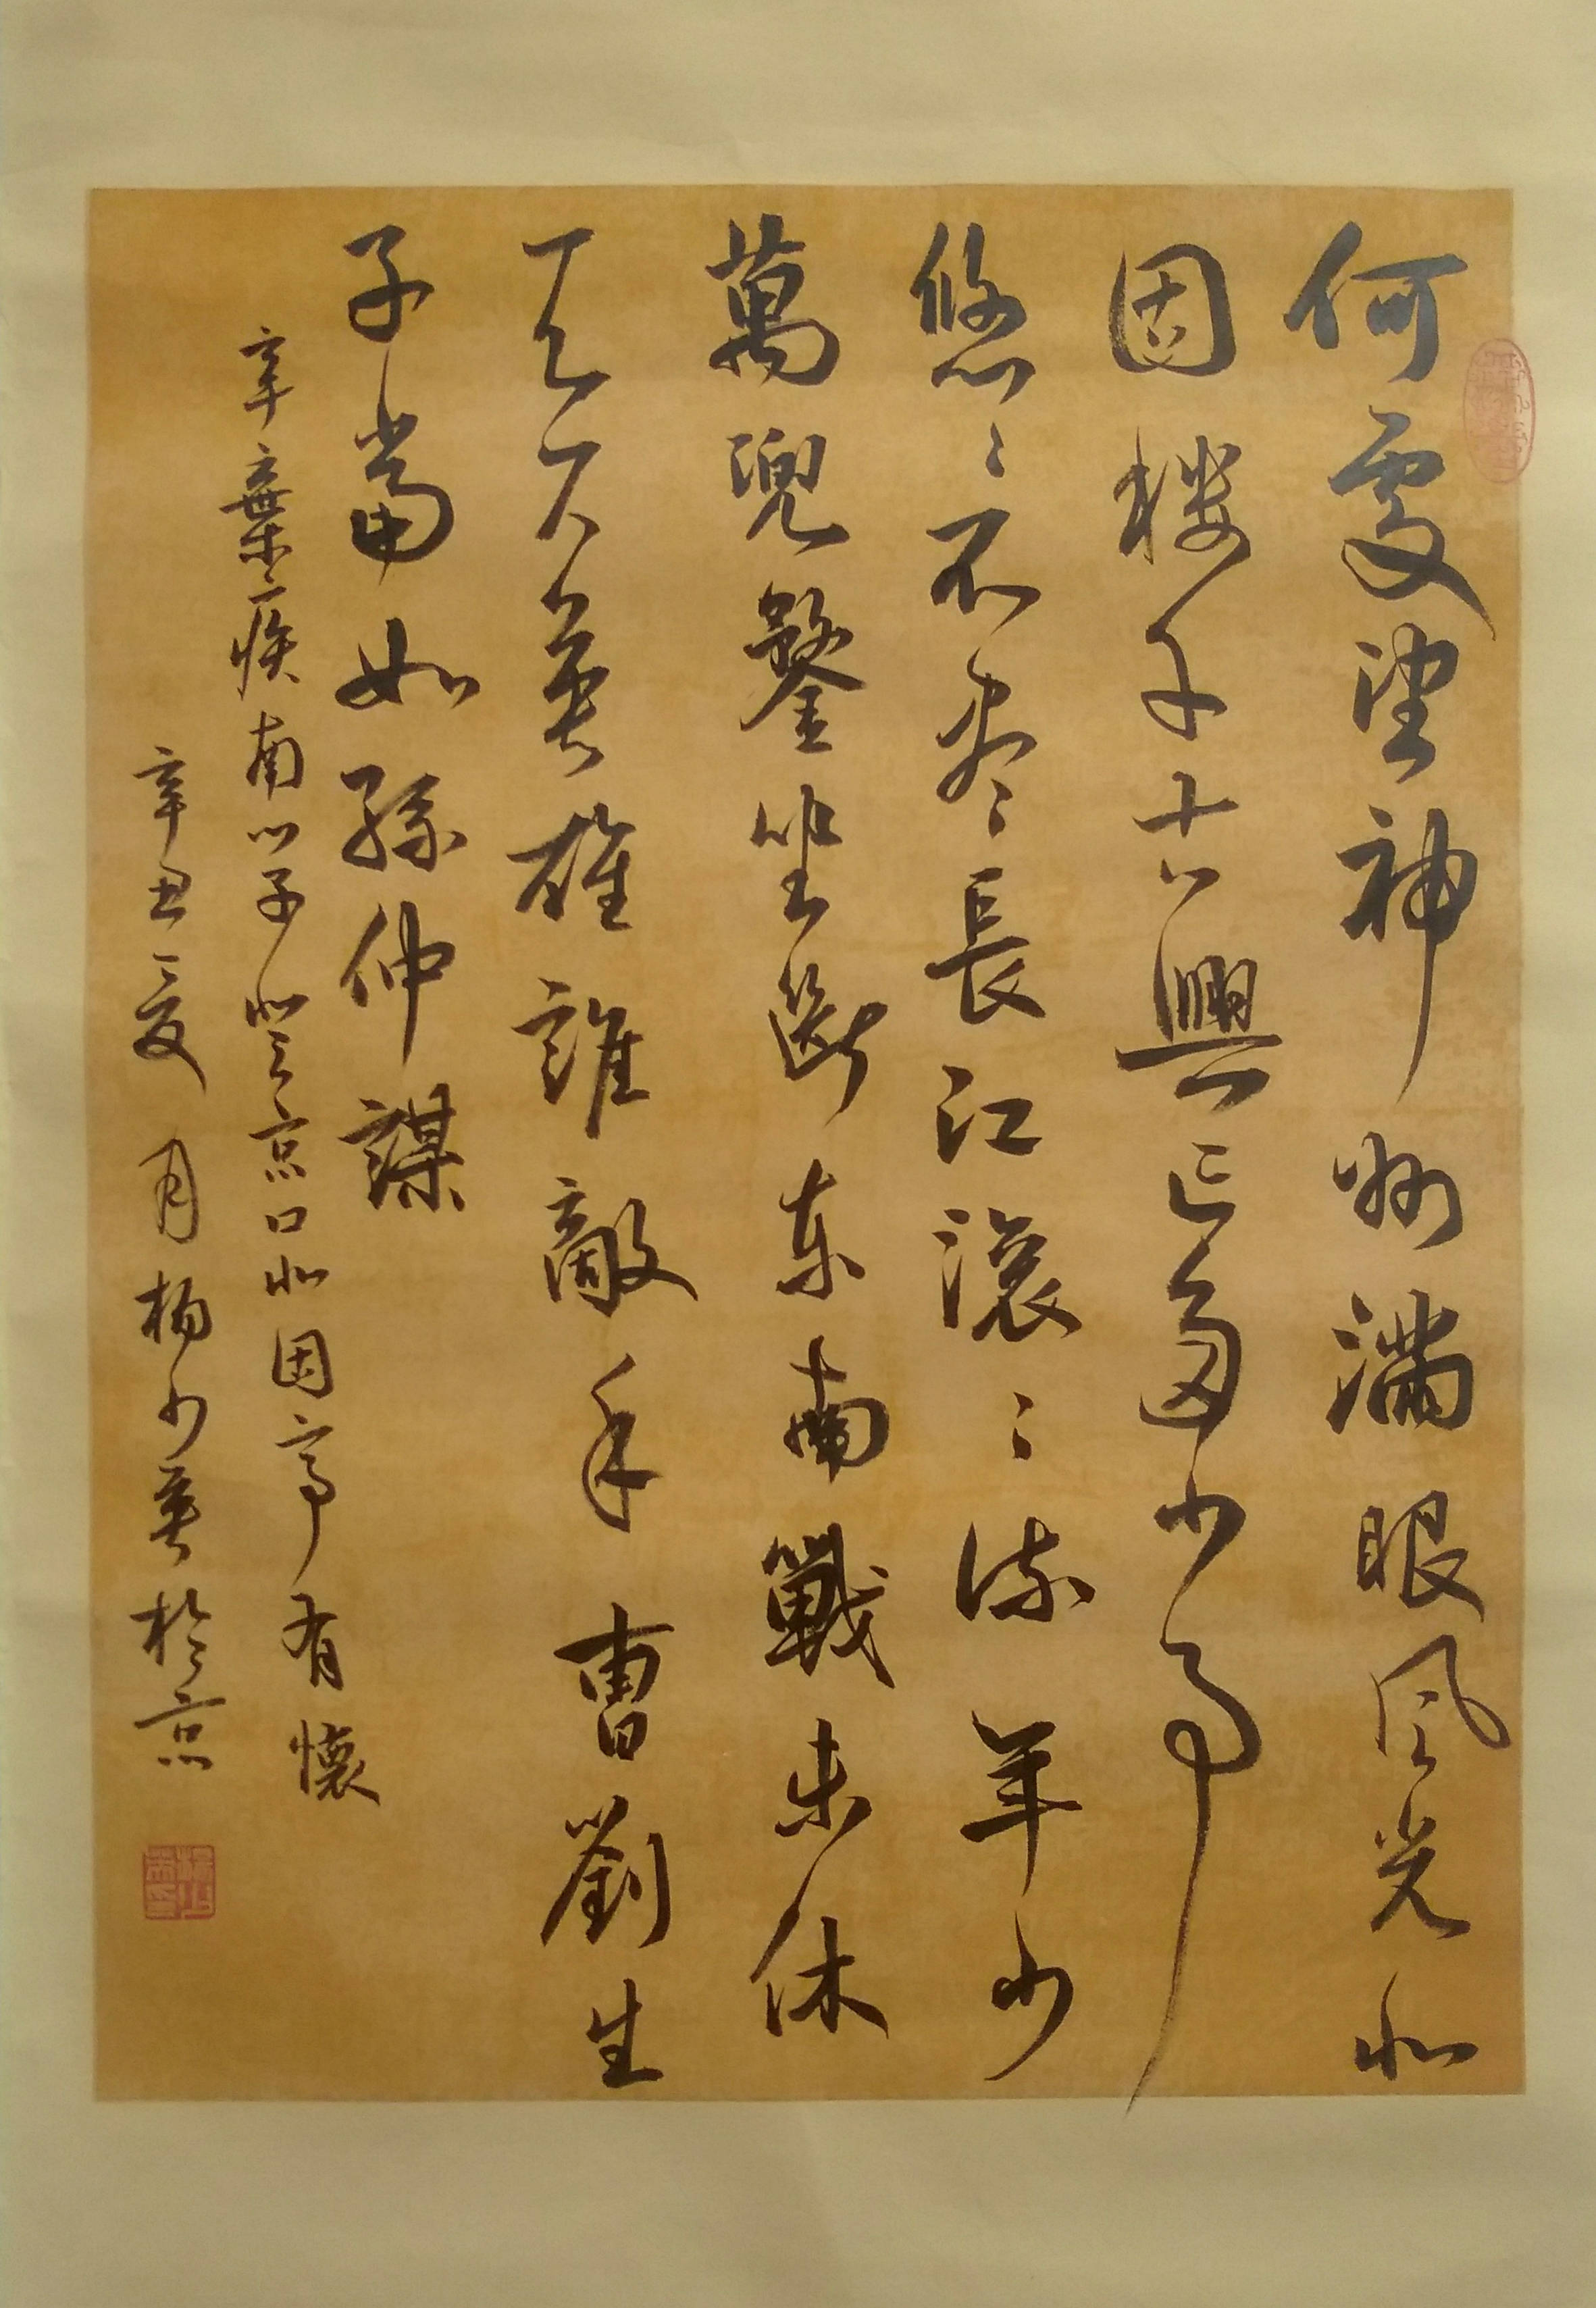 何處望神州滿眼風光北
固楼千古興亡多少事
悠〻不盡長江滾〻流年少
萬兜鍪坐斷東南戰未休
天下英雄誰敵手曹劉生
子當如孫仲謀
辛棄疾南鄉子登京口北固亭有懷
辛丑夏月楊少英於京